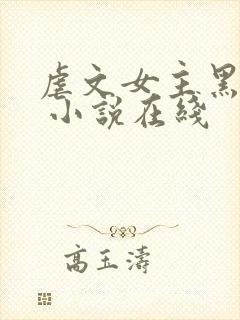 虐文女主黑
小説在綫
高玉濤